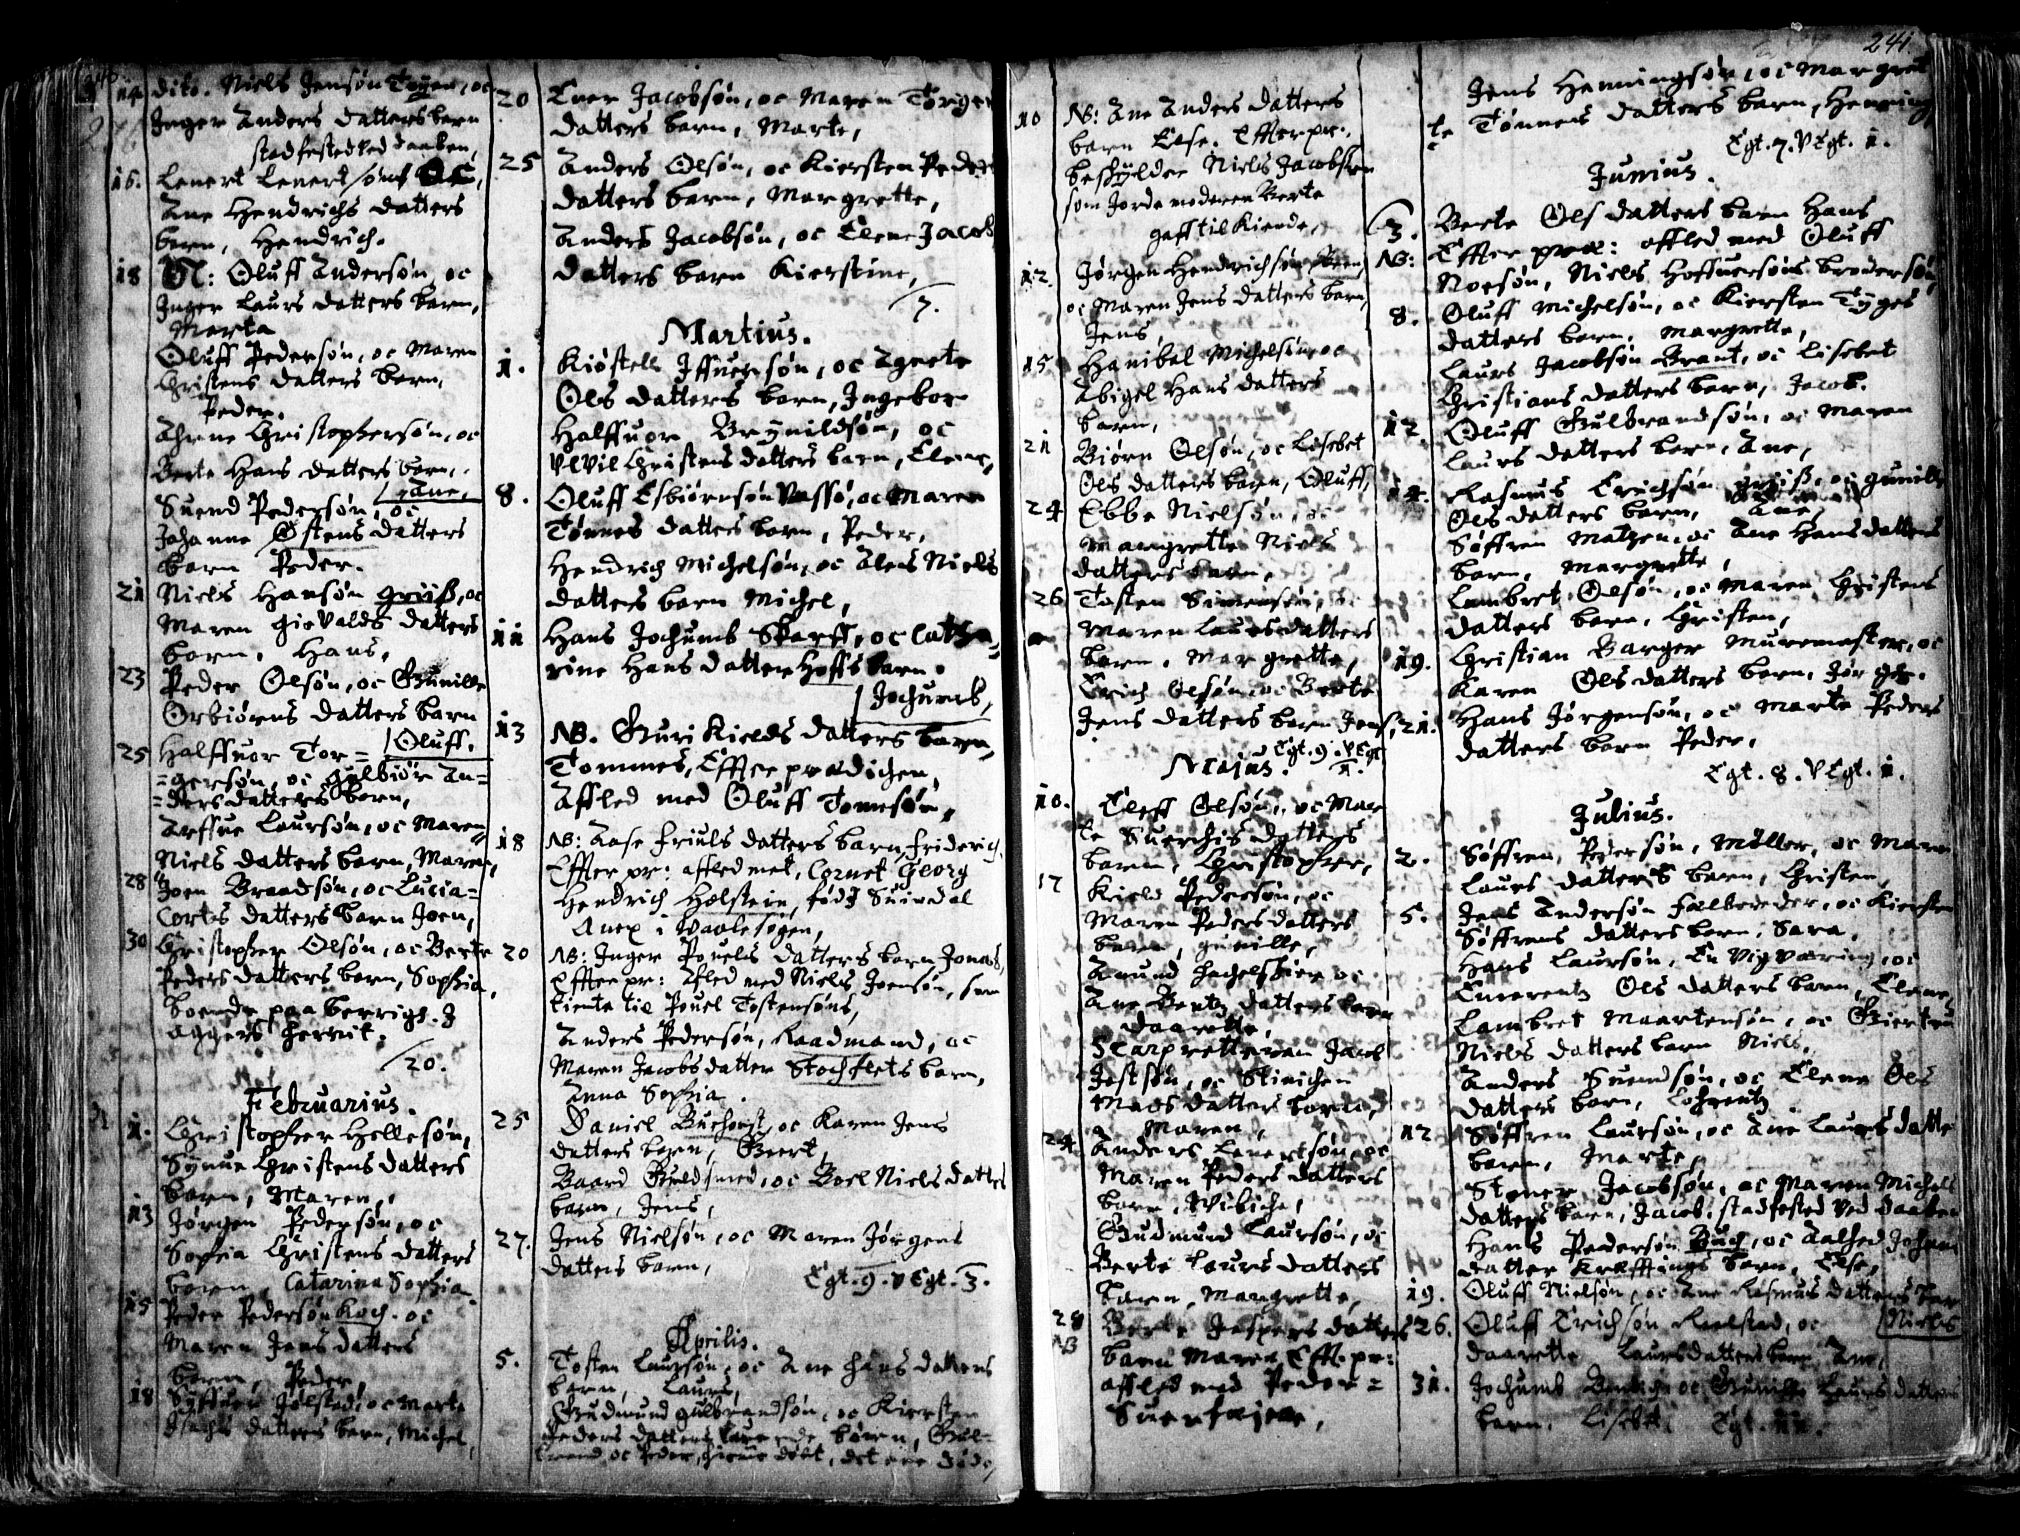 14 dito. Niels Jensøn Toyen, oc
Inger Anders datters barn
stadfested ved daaben,
16. Lenert Lenertsøns oc,
Ane Hendrichs datters
barn, Hendrich.
18 Oluff Andersøn, oc
Inger Laurs datters barn,
Marta
Oluff Pedersøn, oc Maren
Christens datters barn,
Peder.
Christophersøn, oc
Berte Hans datters barn,
Ane,
Suend Pedersøn, oc
Johanne Østens datters
barn Peder.
21 Niels Hansøn griiß, oc
Maren datters
barn, Hans,
23 Peder Olsøn, oc Gunille
Orbiørns datters barn
Oluff.
25 Halffuor Tor=
=gersøn, oc gulbiør An=
=ders datters barn,
Arffue Laursøn, oc Maren
Niels datters barn, Maren,
28 Joen Brandsøn, oc Lucia
Cortes datters barn Joen,
30 Christopher Olsøn, oc Berte
Peders datters barn, Sophia,
boende paa
aggers herrit.
20.
Februarius.
1. Christopher Hellesøn,
Synue Christens datters
barn, Maren,
13 Jørgen Pedersøn, oc
Sophia Christens datters
barn, Catarina Sophia
15 Peder Pedersøn Koch. oc
Maren Jens datters
barn, Peder,
18 Jølsted, oc Marte
Isachs datters barn, Michel,
20 Euer Jacobsøn, oc Maren Torger
datters barn, Marte,
25 Anders Olsøn, oc Kiersten Peders
datters barn, Margrette,
Anders Jacobsøn, oc Elene Jacobs
datters barn Kierstine,
7.
Martius.
1. Kiøstell Iffuersøn, oc Agnete
Ols datters barn, Ingebor
Halffuor Brynildsøn, oc
Christens datters barn, Elene,
8. Oluff Esbiørnsøn Vassø, oc Maren
Tønnes datters barn, Peder,
Hendrich Michelsøn, oc Niels
datters barn Michel,
11 Hans Jochumb Skarff, oc Catha=
rine Hans datter Hoffs barn.
Jochumb,
13 NB. Guri Kields datters barn,
Tommes, Effter prædichen,
Afled med Oluff Tomesøn,
18 NB: Aase Friuls datters barn, Friderich,
Effter pr: affled met, Cornet Georg
Hendrich Holstein, fød I Suindal
Anex i Waale sogen,
20 NB: Inger Pouels datters barn Jonas,
Effter pr: Afled med Niels Joensøn, som
tiente til Pouel Tostensøns,
Anders Pedersøn, Raadmand, oc
Maren Jacobs datter Stochflets barn,
Anna Sophia.
25 Daniel Buchorst, oc Karen Jens
datters barn, Geert,
Baard Guldsmed, oc Boel Niels datters
barn, Jens,
27. Jens Nielsøn, oc Maren Jørgens
datters barn,
Egt. 9. VEgt. 3.
Aprilis.
5. Tosten Laursøn, oc Ane Hans datters
barn, Laurs,
Gudmund gulbrandsøn, oc Kiersten
Peders datters børen, Gul=
brand oc Peder, døbt, det ene
10 NB: Ane Anders datters
barn Else. Effter pr:
beskylder Niels Jacobsøn
som Jorde moderen Berte
gaff til Kiende,
12. Jørgen Hendrichsøn
oc Maren Jens datters barn,
Jens
15 Hanibal Michelsøn oc
Abigel Hans datters
barn,
21 Biørn Olsøn, oc Lisebet
Ols datters barn, Oluff,
24 Ebbe Nielsøn, oc
Margrette Niels
datters barn,
26 Tosten Simensøn, oc
Maren Laurs datters
barn. Margrette,
Erich Olsøn, oc Berte
Jens datters barn Jens,
Egt. 9. VEgt
1.
Majus.
10. Eleff Olsøn, oc Mar
te datters
barn, Christopher,
17 Kield Pedersøn, oc
Maren Peders datters
barn, gunille,
Amund oc
Ane Bentz datters barn
Daarette,
Scarpretteren Jacob
Jostsøn, oc Stinichen
Mads datters barn,
Maren,
24. Anders Lenertsøn, oc
Maren Peders datters
barn, Wibiche,
Gudmund Laursøn, oc
Berte Laurs datters
barn, Margrette,
28 Berte Jespers datters
NB barn Maren Eff. pr:
affled med Peder =
241.
Jens Henningsøn, oc Margret
te Tønnes datters barn, Henning,
Egt. 7. VEgt. 1.
Junius.
3. Berte Ols datters barn Hans
NB: Effter præ: affled med Oluff
Roesøn, Niels Hoffuersøns brodersøn,
8. Oluff Michelsøn, oc Kiersten Tyges
datters barn, Margrette,
Laurs Jacobsøn Brant, oc Lisebet
Christians datters barn, Jacob.
12. Oluff Gulbrandsøn, oc Maren
Laurs datters barn, Ane,
14. Rasmus Erichsøn griiß, oc gunille
Ols datters barn, Ane,
Søffren Matzen, oc Ane Hans datters
barn, Margrette,
Lambret Olsøn, oc Maren Christens
datters barn, Christen,
19. Christian Barger Muremester, oc
Karen Ols datters barn, Jørgen.
21. Hans Jørgensøn, oc Marte Peders
datters barn Peder,
Egt. 8. VEgt. 1.
Julius.
2. Søffren, Pedersøn, Møller, oc Maren
Laurs datters barn, Christen,
5. Jens Andersøn oc Kiersten
Søffrens datters barn, Sara,
Hans Laursøn, En Vigværing, oc
Ols datters barn, Elene,
Lambret Maartensøn, oc Giertru
Niels datters barn Niels,
Anders Suendsøn, oc Elene Ols
datters barn,
12 Søffren Laursøn, oc Ane Laurs datters
barn, Marte,
Stener Jacobsøn, oc Maren Michels
datters barn, Jacob. stadfested ved daaben
Hans Pedersøn Buch, oc Aalhed Johan
datter barn, Else,
19. Oluff Nielsøn, oc Ane Rasmus datters bar
Niels
26. Oluff Erichsøn oc
daarette Laurs datters barn Ane,
31. Jochumb oc Laurs datters
barn. Lisebet. Egt. 11.